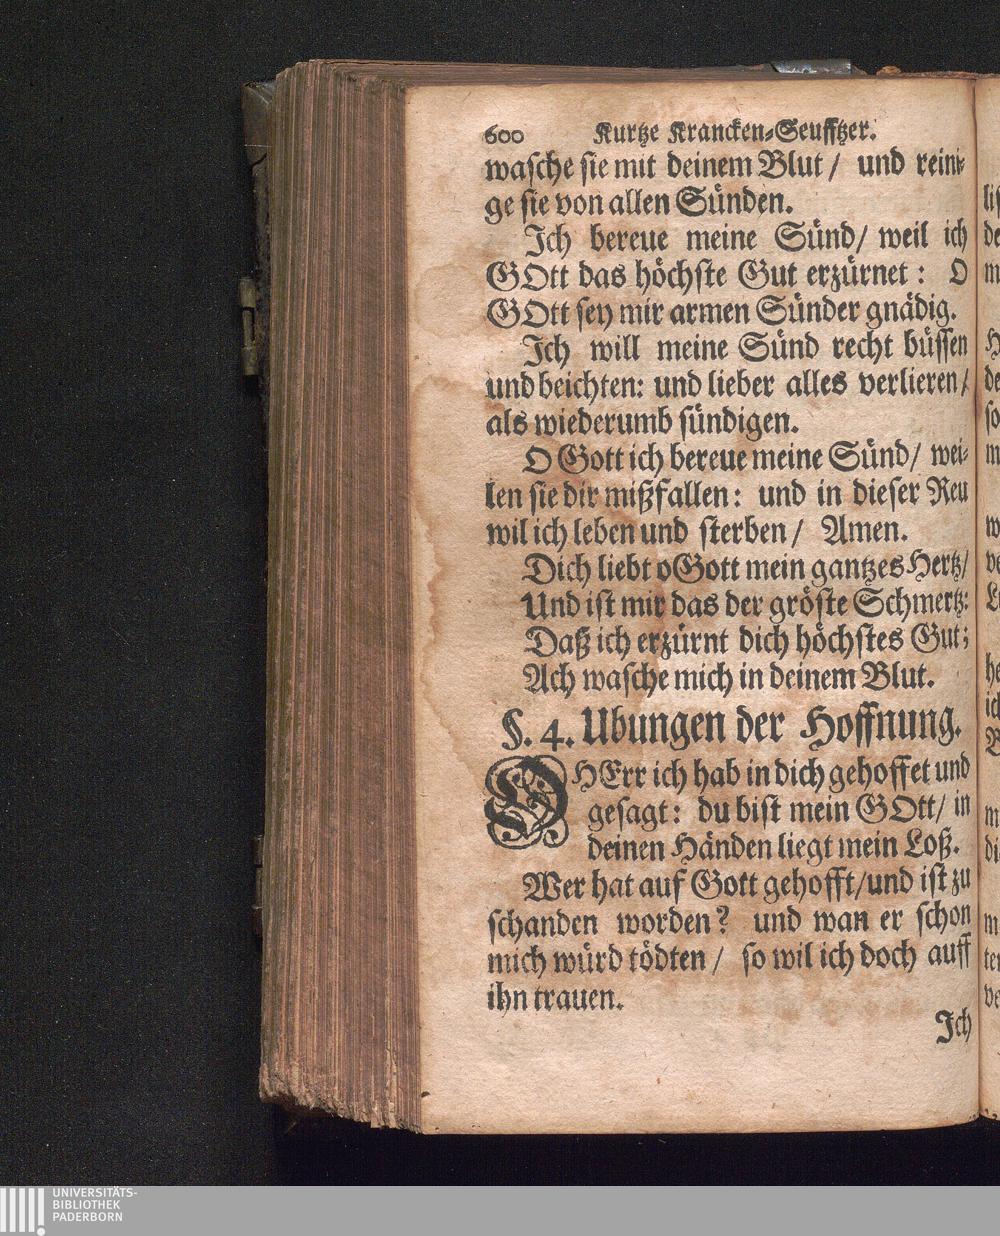 600 Kurtze Krancken-Seufftzer.
wasche sie mit deinem Blut / und reini-
ge sie von allen Sünden.
Ich bereue meine Sünd/ weil ich
GOtt das höchste Gut erzürnet: O
GOtt sey mir armen Sünder gnädig.
Ich will meine Sünd recht büssen
und beichten: und lieber alles verlieren/
als wiederumb sündigen.
O Gott ich bereue meine Sünd/ wei-
len sie dir mißfallen: und in dieser Reu
wil ich leben und sterben / Amen.
Dich liebt o Gott mein gantzes Hertz/
Und ist mir das der gröste Schmertz:
Daß ich erzürnt dich höchstes Gut;
Ach wasche mich in deinem Blut.
§. 4. Ubungen der Hoffnung.
O HErr ich hab in dich gehoffet und
gesagt: du bist mein GOtt/ in
deinen Händen liegt mein Loß.
Wer hat auf Gott gehofft/und ist zu
schanden worden? und wan er schon
mich würd tödten / so wil ich doch auff
ihn trauen.
Ich
UNIVERSITÄTS-
BIBLIOTHEK
PADERBORN